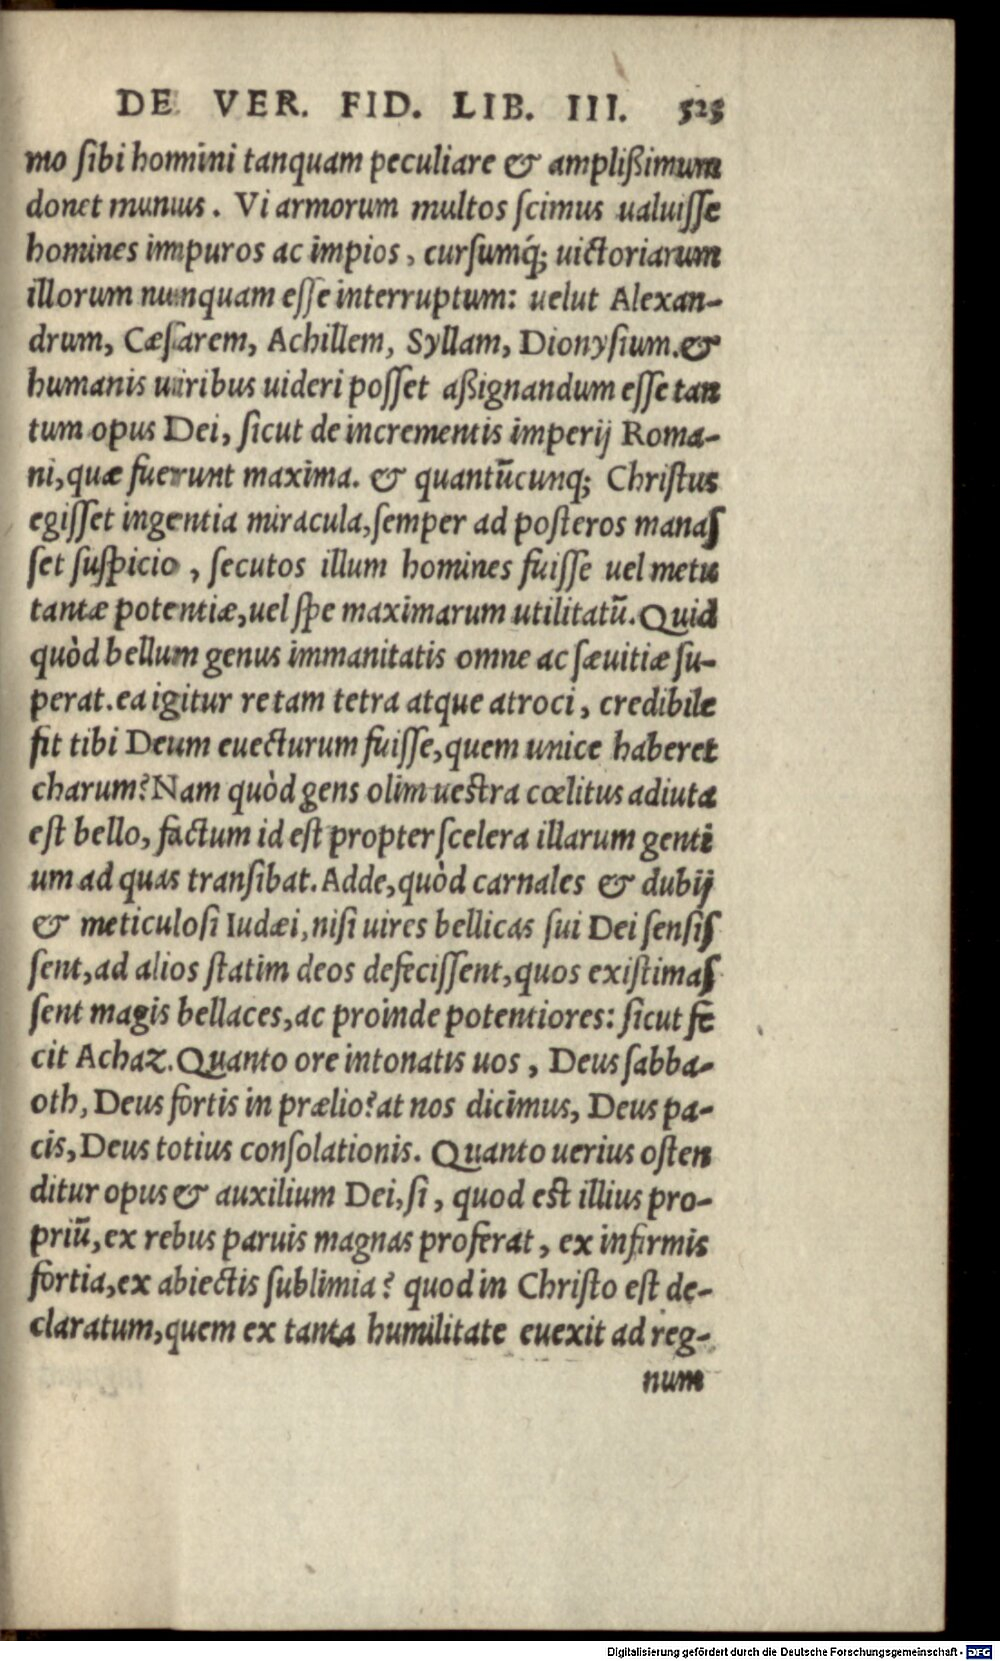 DE VER. FID. LIB. III. 525
mo ſibi homini tanquam peculiare & ampliſsimum
donet munus. Vi armorum multos ſcimus ualuiſſe
homines impuros ac impios, curſumq́; uictoriarum
illorum nunquam eſſe interruptum: uelut Alexan-
drum, Cæſarem, Achillem, Syllam, Dionyſium. &
humanis uiribus uideri poſſet aſsignandum eſſe tan
tum opus Dei, ſicut de incrementis imperij Roma-
ni, quæ fuerunt maxima. & quantũcunq; Chriſtus
egiſſet ingentia miracula, ſemper ad poſteros manaſ
ſet ſuſpicio, ſecutos illum homines fuiſſe uel metu
tantæ potentiæ, uel ſpe maximarum utilitatũ. Quid
quòd bellum genus immanitatis omne ac ſæuitiæ ſu-
perat. ea igitur re tam tetra atque atroci, credibile
fit tibi Deum euecturum fuiſſe, quem unice haberet
charum? Nam quòd gens olim ueſtra cœlitus adiuta
eſt bello, factum id eſt propter ſcelera illarum genti
um ad quas tranſibat. Adde, quòd carnales & dubij
& meticuloſi Iudæi, niſi uires bellicas ſui Dei ſenſiſ
ſent, ad alios ſtatim deos defeciſſent, quos exiſtimaſ
ſent magis bellaces, ac proinde potentiores: ſicut fe
cit Achaz. Quanto ore intonatis uos, Deus ſabba-
oth, Deus fortis in prælio? at nos dicimus, Deus pa-
cis, Deus totius conſolationis. Quanto uerius oſten
ditur opus & auxilium Dei, ſi, quod eſt illius pro-
priũ, ex rebus paruis magnas proferat, ex infirmis
fortia, ex abiectis ſublimia? quod in Chriſto eſt de-
claratum, quem ex tanta humilitate euexit ad reg-
num
Digitalisierung gefördert durch die Deutsche Forschungsgemeinschaft - DFG